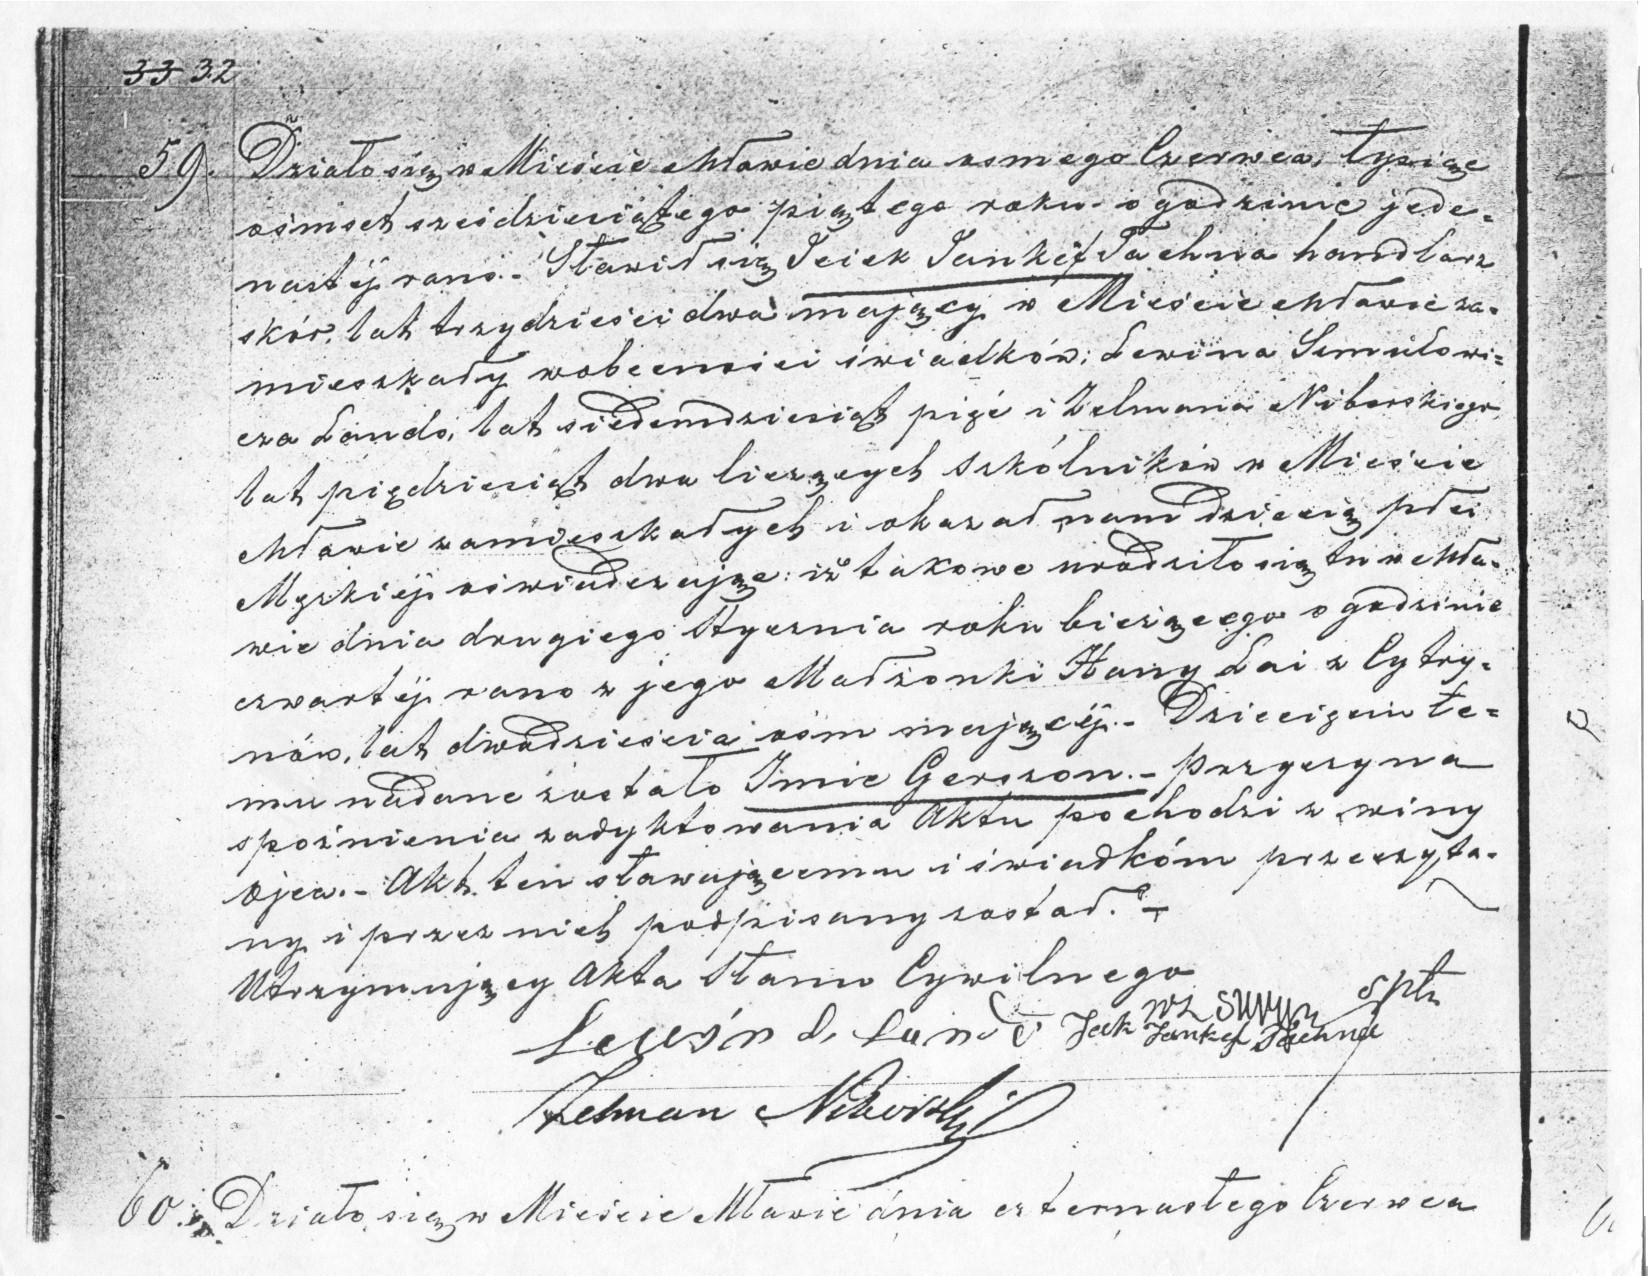 33 32
59. Działo się w Mieście Mławie dnia osmego Czerwca, tysiąc
ośmset sześdziesiątego piątego roku o godzinie jede=
nastéj rano.- Stawił się Icek Jankef Tachna handlarz
skór, lat trzydzieści dwa mający w Mieście Mławie za=
mieszkały w obecności świadków: Lewina Szmulowi=
cza Lando, lat siedemdziesiąt pięć i Zelmana Niborskiego
lat piędziesiąt dwa liczących szkólników w Mieście
Mławie zamieszkałych i okazał nam dziecię płci
Męzkiéj oświadczając: iż takowe urodziło się tu w Mła=
wie dnia drugiego Stycznia roku bieżącego o godzinie
czwartéj rano z jego Małżonki Hany Łai z Cytry=
nów, lat dwadzieścia ośm mającéj.- Dziecięciu te=
mu nadane zostało Imie Gerszon.- Przyczyna
spoźnienia zadyktowania Aktu pochodzi z winy
Ojca.- Akt ten stawającemu i świadkóm przeczyta=
ny i przez nich podpisany został.-
Utrzymujący Akta Stanu Cywilnego
Lewin L. Lando Jcek Jankef Tachna
Zelman Niborski
60. Działo się w Mieście Mławie dnia czternastego Czerwca